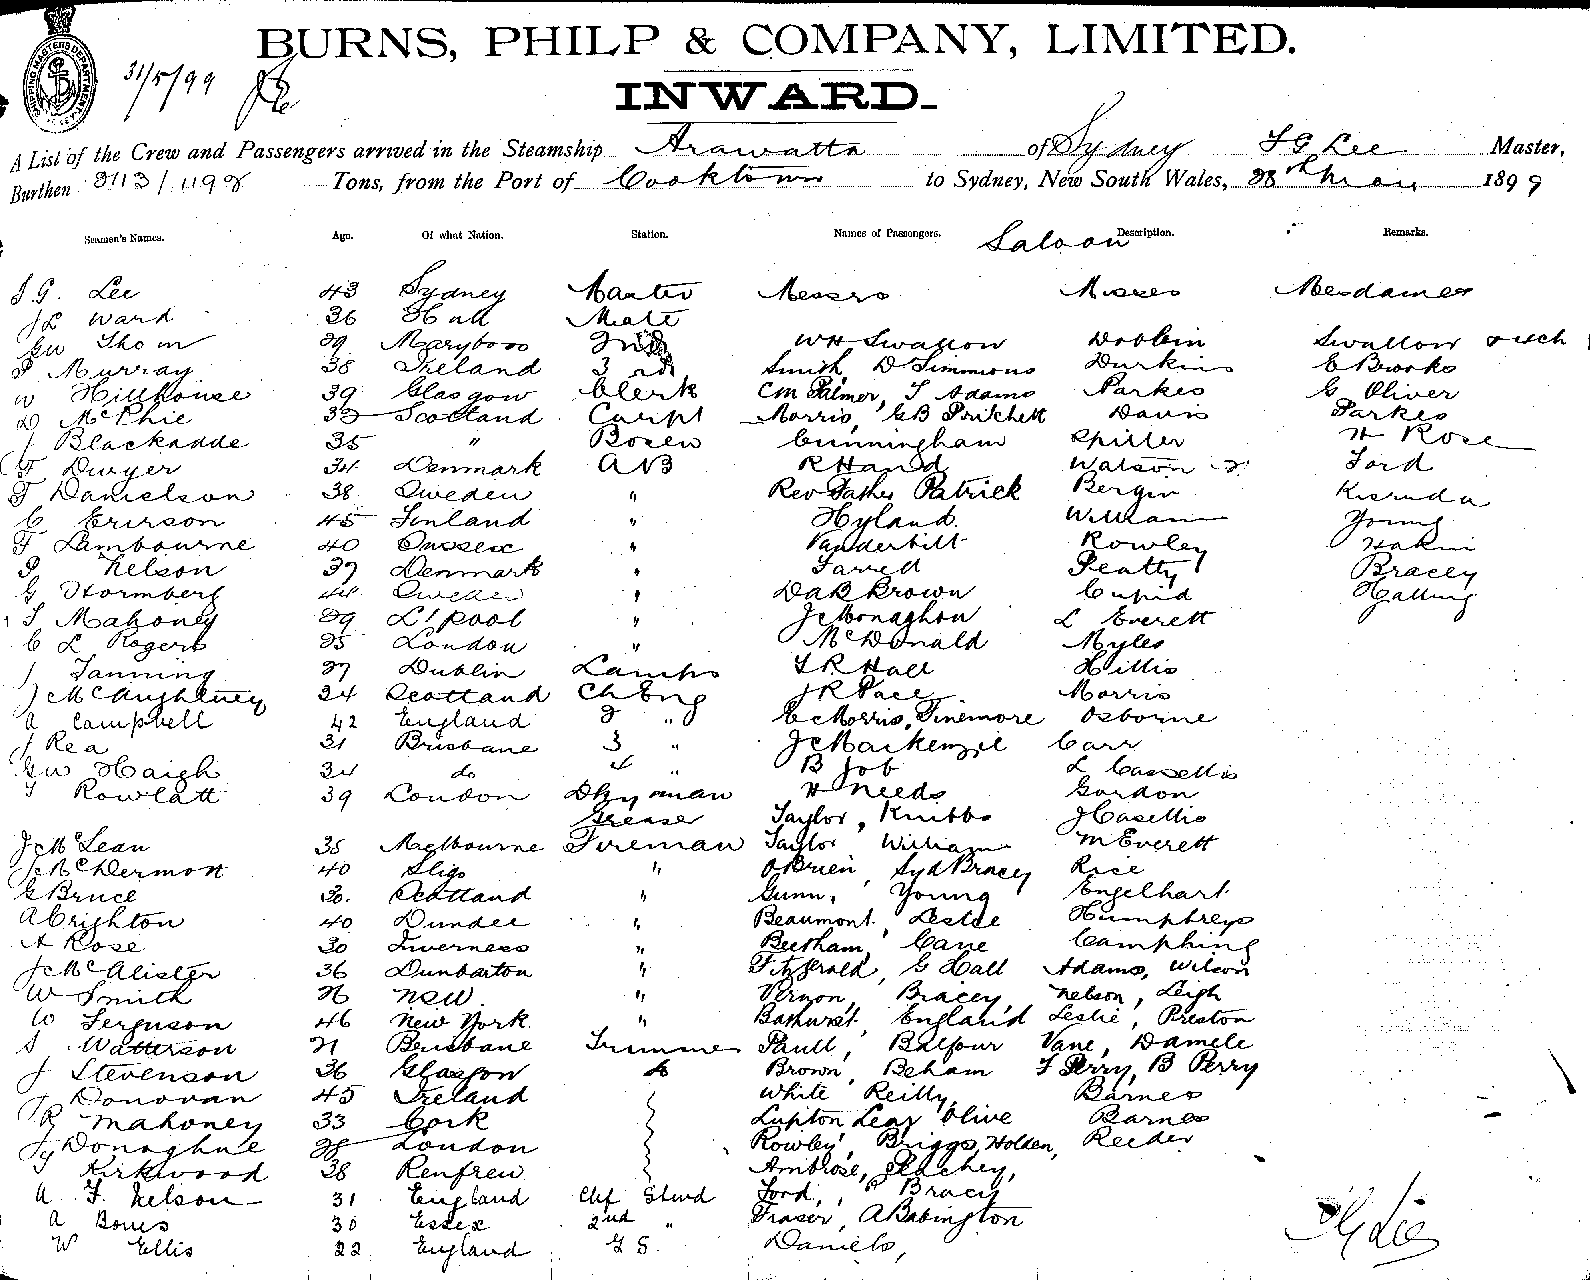 BURNS, PHILP & COMPANY, LIMITED.
31/5/99
INWARD.
A List of the Crew and Passengers arrived in the Steamship Arawatta of Sydney J G Lee Master,
Burthen 2113/1198 Tons, from the Port of Cooktown to Sydney, New South Wales, 28th May 1899
Seamen's Names. Age. Of what Nation. Station. Names of Passengers. Saloon Description. Remarks.
J.G. Lee 43 Sydney Master Messrs Misses Mesdames
J L Ward 36 Hull Mate
GW Thom 29 Maryboro 2nd WH Swallow Dobbin Swallow
P Murray 38 Ireland 3rd Smith, D Simmons Durkin C Brooks
W Hillhouse 39 Glasgow Clerk CM Palmer, J Adams Parkes G Oliver
D McPhie 33 Scotland Carpt Morris, GB Pritchett Davis Parkes
J Blackadde 35 " Bosen Cunningham Spiller H Rose
T Dwyer 34 Denmark AB R Hand Watson 2 Ford
F Danielson 38 Sweden " Rev Father Patrick Bergin
C Erirson 45 Finland " Hyland. William Young
F Lambourne 40 Sussex " Vanderbilt Rowley Hakin
P Nelson 37 Denmark " Farrell Peatty Bracey
G Stormberg 44 Sweden " D a B Brown Cupid Halling
T Mahoney 29 L'pool " J C Monaghan L Everett
C L Rogers 25 London " McDonald Myles
J Fanning 27 Dublin Lamps T R Hall Hillis
J McCaughtney 24 Scotland Ch Eng J R Pace Morris
A Campbell 42 England 2 " C C Morris, Finemore Osborne
J Rea 31 Brisbane 3 " J C Mackenzie Carr
GW Haigh 34 do 4 " B Job L Cassellis
T Rowlatt 39 London Dkyman H Needs Gordon
Greaser Taylor, Knibbs J Casellis
J McLean 35 Melbourne Fireman Taylor William M Everett
J McDermott 40 Sligo " OBrien, Syd Bracey Rice
G Bruce 30. Scotland " Gunn, Young Engelhart
A Crighton 40 Dundee " Beaumont, Leslie Humphreys
A Rose 30 Inverness " Beetham, Cane Camphing
J McAlister 36 Dunbarton " Fitzgerald, G Hall Adams, Wilson
W Smith 26 NSW. " Vernon, Bracey, Nelson, Leigh
W Ferguson 46 New York. " Bathurst, England Leslie, Preston
S Watterson 21 Brisbane Trimmer Paull, Balfour Vane, Damele
J Stevenson 36 Glasgow Brown, Beham F Perry, B Perry
J Donovan 45 Ireland White Reilly, Barnes
R Mahoney 33 Cork Lupton Lear Olive Barnes
Donoghue 28 London Rowley, Briggs, Holden, Reeder
Kirkwood 28 Renfrew Ambrose,
A F Nelson 31 England Chf Stwd Ford, P Bracey
A Bones 30 Essex 2nd " Fraser, A Babington
W Ellis 22 England G S. Daniels,
J G Lee